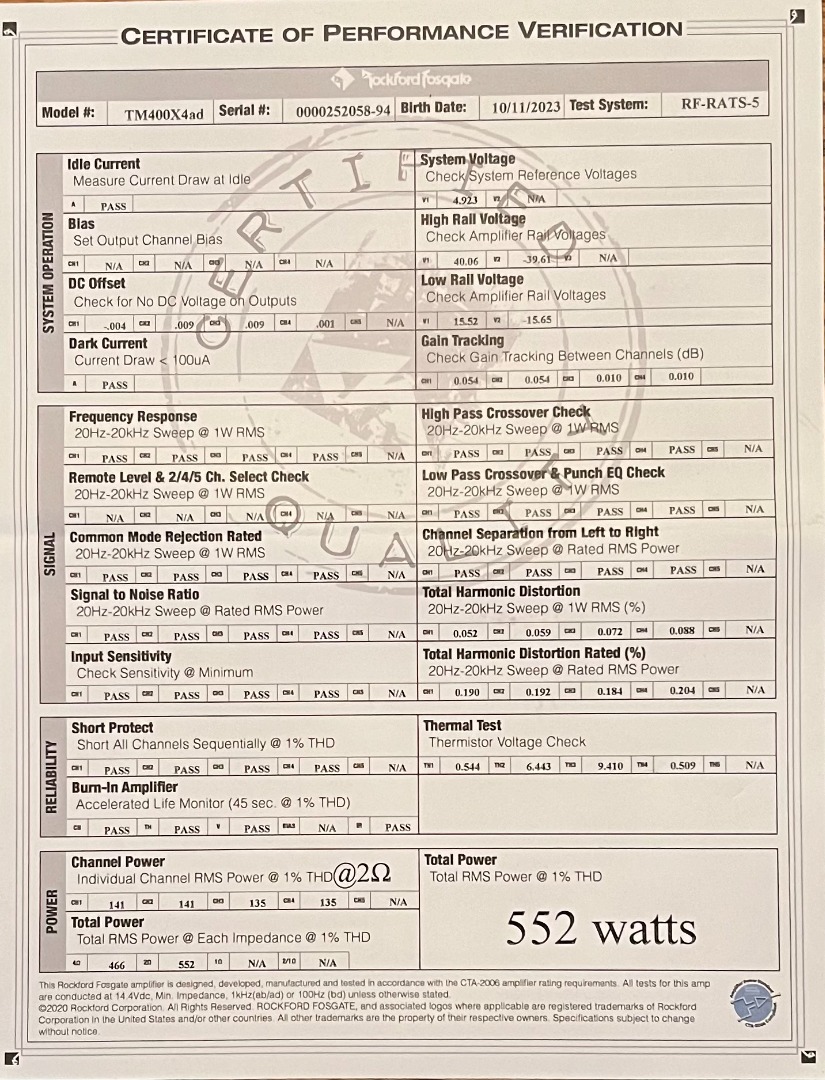 CERTIFICATE OF PERFORMANCE VERIFICATION
rockford fosgate
Model #: TM400X4ad Serial #: 0000252058-94 Birth Date: 10/11/2023 Test System: RF-RATS-5
CERTIFIED
QUALITY
SYSTEM OPERATION
Idle Current
Measure Current Draw at Idle
A PASS
System Voltage
Check System Reference Voltages
V1 4.923 V2 N/A
Bias
Set Output Channel Bias
CH1 N/A CH2 N/A CH3 N/A CH4 N/A
High Rail Voltage
Check Amplifier Rail Voltages
V1 40.06 V2 -39.61 V3 N/A
DC Offset
Check for No DC Voltage on Outputs
CH1 -.004 CH2 .009 CH3 .009 CH4 .001 CH5 N/A
Low Rail Voltage
Check Amplifier Rail Voltages
V1 15.52 V2 -15.65
Dark Current
Current Draw < 100uA
A PASS
Gain Tracking
Check Gain Tracking Between Channels (dB)
CH1 0.054 CH2 0.054 CH3 0.010 CH4 0.010
SIGNAL
Frequency Response
20Hz-20kHz Sweep @ 1W RMS
CH1 PASS CH2 PASS CH3 PASS CH4 PASS CH5 N/A
High Pass Crossover Check
20Hz-20kHz Sweep @ 1W RMS
CH1 PASS CH2 PASS CH3 PASS CH4 PASS CH5 N/A
Remote Level & 2/4/5 Ch. Select Check
20Hz-20kHz Sweep @ 1W RMS
CH1 N/A CH2 N/A CH3 N/A CH4 N/A CH5 N/A
Low Pass Crossover & Punch EQ Check
20Hz-20kHz Sweep @ 1W RMS
CH1 PASS CH2 PASS CH3 PASS CH4 PASS CH5 N/A
Common Mode Rejection Rated
20Hz-20kHz Sweep @ 1W RMS
CH1 PASS CH2 PASS CH3 PASS CH4 PASS CH5 N/A
Channel Separation from Left to Right
20Hz-20kHz Sweep @ Rated RMS Power
CH1 PASS CH2 PASS CH3 PASS CH4 PASS CH5 N/A
Signal to Noise Ratio
20Hz-20kHz Sweep @ Rated RMS Power
CH1 PASS CH2 PASS CH3 PASS CH4 PASS CH5 N/A
Total Harmonic Distortion
20Hz-20kHz Sweep @ 1W RMS (%)
CH1 0.052 CH2 0.059 CH3 0.072 CH4 0.088 CH5 N/A
Input Sensitivity
Check Sensitivity @ Minimum
CH1 PASS CH2 PASS CH3 PASS CH4 PASS CH5 N/A
Total Harmonic Distortion Rated (%)
20Hz-20kHz Sweep @ Rated RMS Power
CH1 0.190 CH2 0.192 CH3 0.184 CH4 0.204 CH5 N/A
RELIABILITY
Short Protect
Short All Channels Sequentially @ 1% THD
CH1 PASS CH2 PASS CH3 PASS CH4 PASS CH5 N/A
Thermal Test
Thermistor Voltage Check
TH1 0.544 TH2 6.443 TH3 9.410 TH4 0.509 TH5 N/A
Burn-In Amplifier
Accelerated Life Monitor (45 sec. @ 1% THD)
PASS TH PASS V PASS N/A PASS
POWER
Channel Power
Individual Channel RMS Power @ 1% THD @2Ω
CH1 141 CH2 141 CH3 135 CH4 135 CH5 N/A
Total Power
Total RMS Power @ 1% THD
552 watts
Total Power
Total RMS Power @ Each Impedance @ 1% THD
4Ω 466 2Ω 552 1Ω N/A N/A
This Rockford Fosgate amplifier is designed, developed, manufactured and tested in accordance with the CTA-2006 amplifier rating requirements. All tests for this amp
are conducted at 14.4Vdc, Min. Impedance, 1kHz(ab/ad) or 100Hz (bd) unless otherwise stated.
©2020 Rockford Corporation. All Rights Reserved. ROCKFORD FOSGATE, and associated logos where applicable are registered trademarks of Rockford
Corporation in the United States and/or other countries. All other trademarks are the property of their respective owners. Specifications subject to change
without notice.